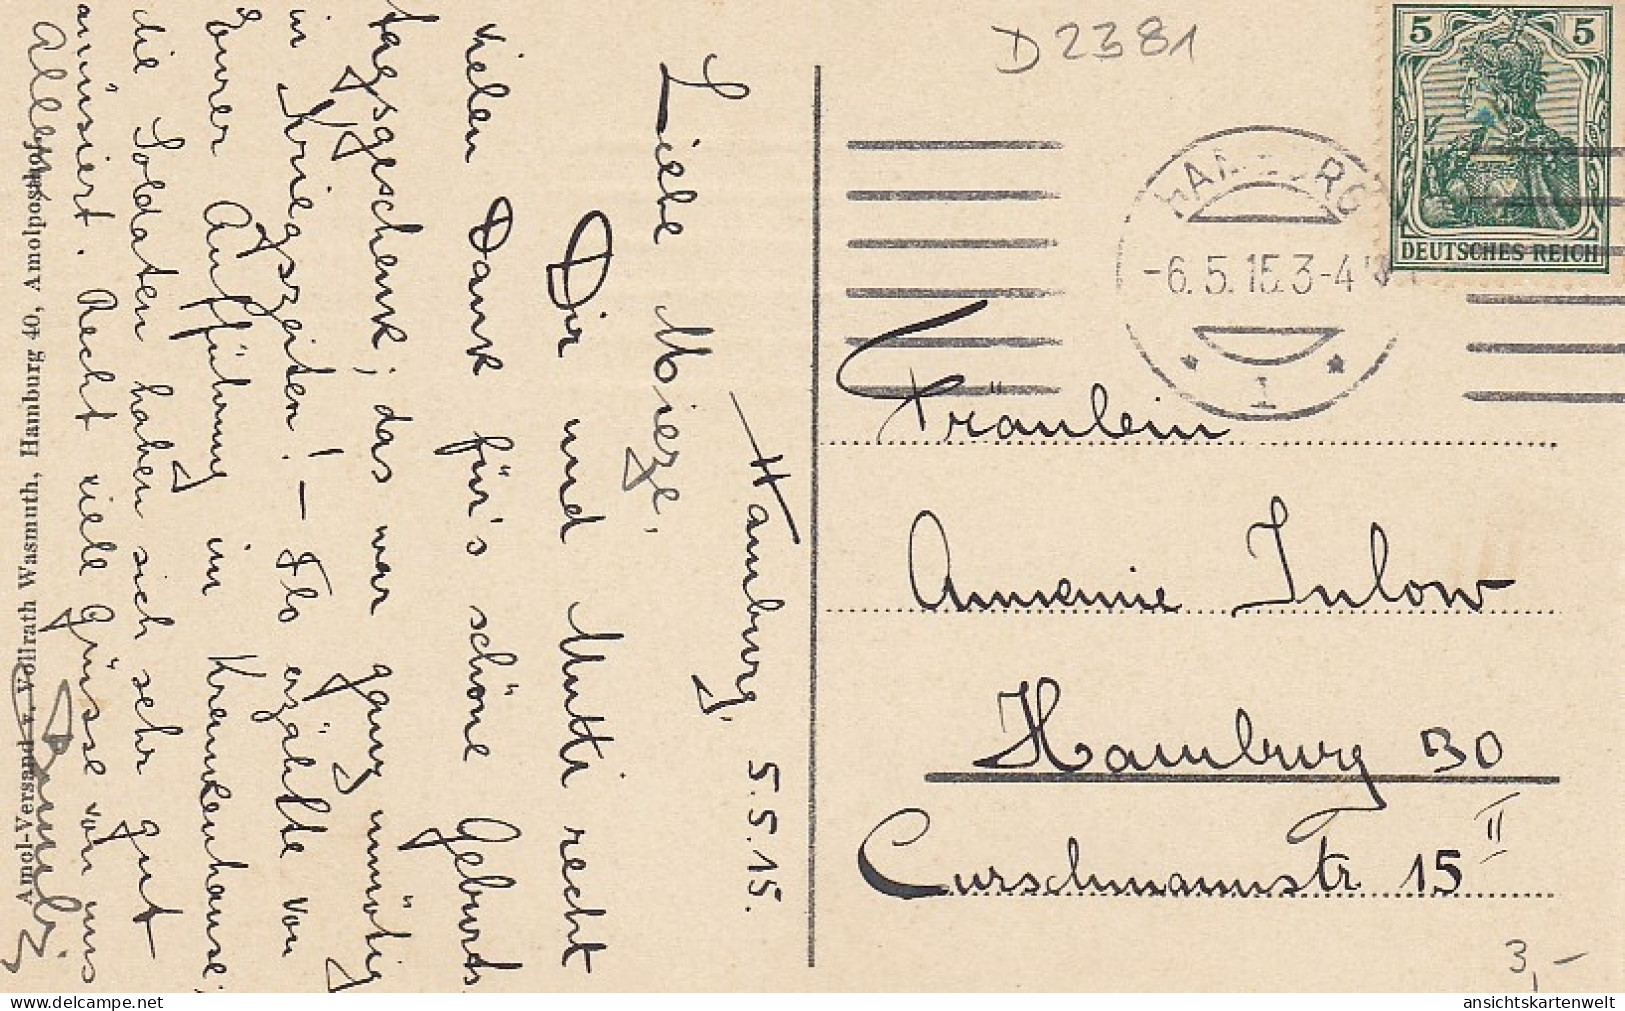 D2381
5 5
DEUTSCHES REICH
HAMBURG
-6.5.15.3-4
1
Fräulein
Annemie Inlow
Hamburg 30
Curschmannstr 15 II
3,-
Hamburg, 5.5.15.
Liebe Mieze,
Dir und Mutti recht
vielen Dank für's schöne Geburts
tagsgeschenk; das war ganz unnötig
in Kriegszeiten! – Flo erzählte von
Eurer Aufführung im Krankenhause;
die Soldaten haben sich sehr gut
amüsiert. Recht viele Grüsse von uns
Allen
Amol-Versand v. Vollrath Wasmuth, Hamburg 40, Amolposthof
ansichtskartenwelt